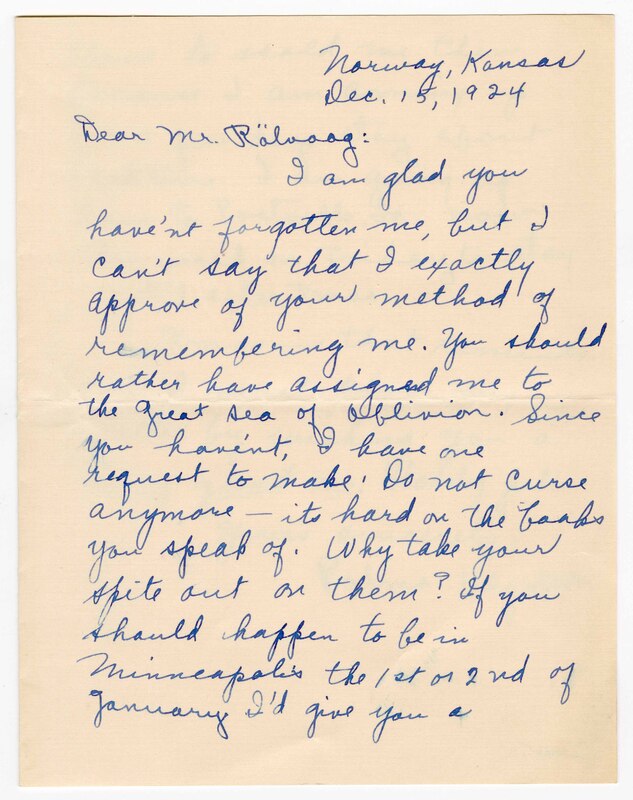 Norway, Kansas
Dec. 15, 1924
Dear Mr. Rölvaag:
I am glad you
have'nt forgotten me, but I
can't say that I exactly
approve of your method of
remembering me. You should
rather have assigned me to
the great sea of oblivion. Since
you havent, I have one
request to make: Do not curse
anymore – its hard on the books
you speak of. Why take your
spite out on them? If you
should happen to be in
Minneapolis the 1st or 2nd of
January I'd give you a